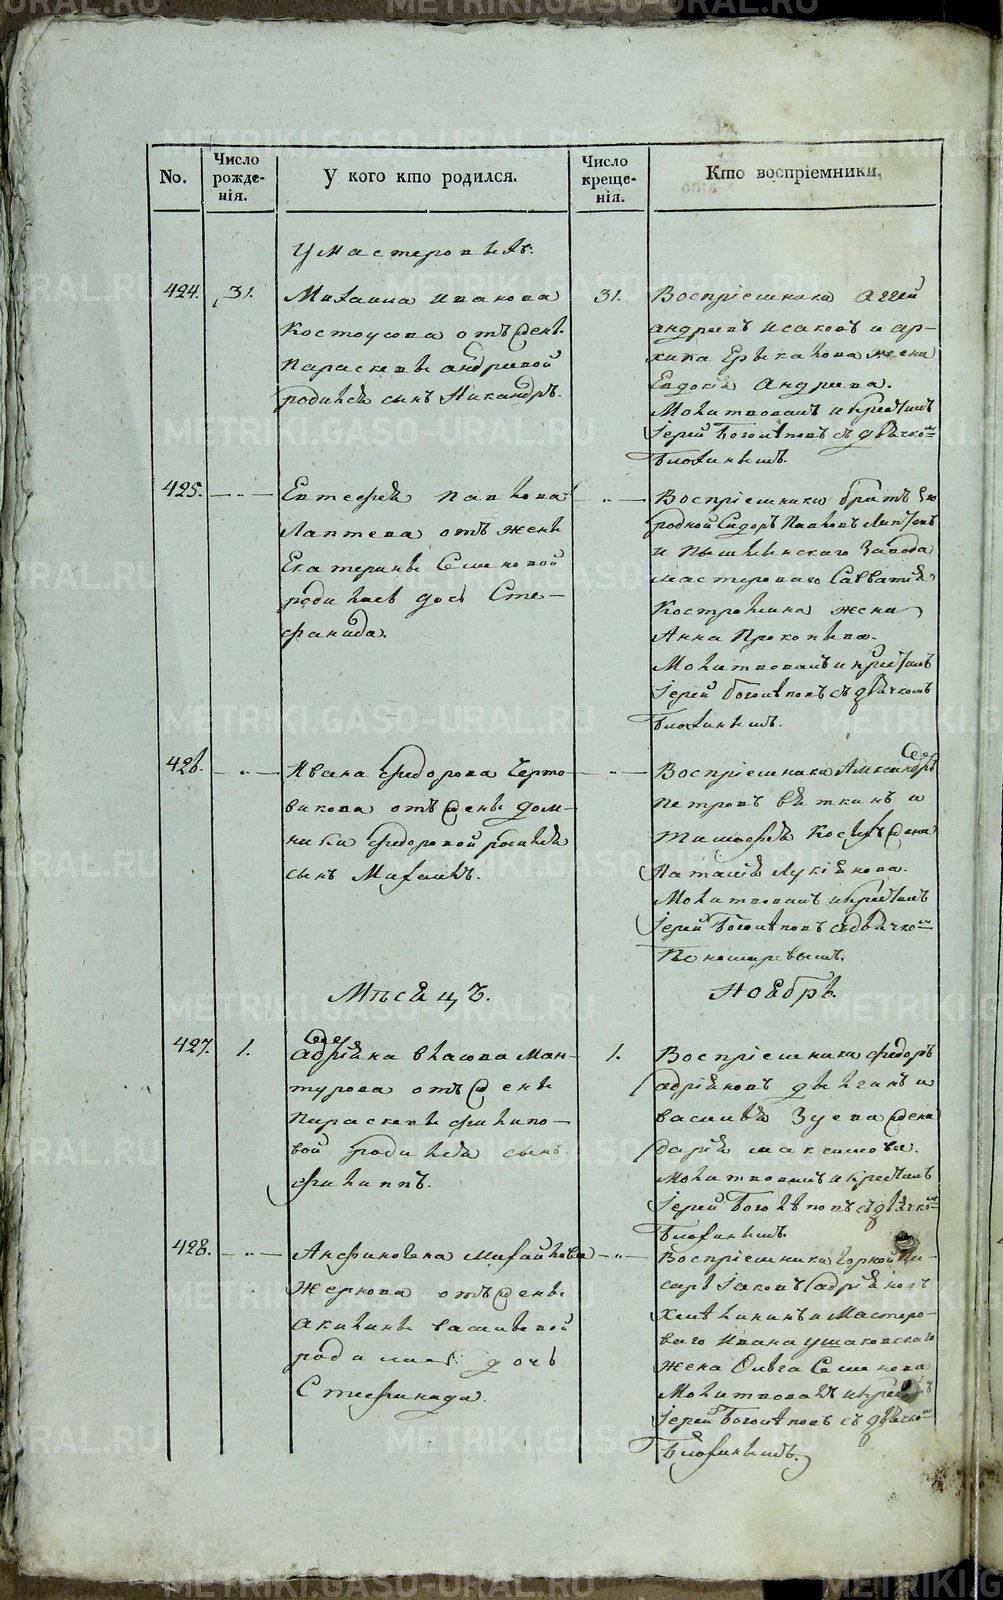 No.
Число рожде-
нія.
У кого кто родился.
Число креще-
нія.
Кто воспріемники,
У Мастеровыхъ:
424.
31.
Михаила Иванова
Костоусова отъ жены
Параскевы Андриевой
родился сынъ Никандръ.
31.
Воспріемники Аггей
Андриевъ Исаковъ и Ар-
хипа жена
Евдокія Андриева.
Молитвовалъ и крестилъ
Іерей Боголеповъ съ дьячко=
Блохинымъ.
425.
Евтефія Павлова
Лаптева отъ жены
Екатерины Семеновой
родилась дочь Сте-
фанида.
Воспріемники братъ его
родной Сидоръ Павловъ Лаптевъ
и Пышминскаго завода
мастероваго Савватія
Костромина жена
Анна Прокопьева.
Молитвовалъ и крестилъ
Іерей Боголеповъ съ дьячкомъ
Блохинымъ.
426.
Ивана Федорова Черто-
викова отъ жены Дом-
ники Федоровой родился
сынъ Михаилъ.
Воспріемники Александръ
Петровъ Вяткинъ и
жена
Наталія Лукіянова.
Молитвовалъ и крестилъ
Іерей Боголеповъ съ дьячко=
Пономаревымъ.
Мѣсяцъ.
Ноябрь.
427.
1.
Адріяна Власова Ман-
турова отъ жены
Параскевы Филипо-
вой родился сынъ
Филиппъ.
1.
Воспріемники Федоръ
Адріяновъ и
Василья Зуева жена
Дарія Максимова.
Молитвовалъ и крестилъ
Іерей Боголеповъ съ дьячко=
Блохинымъ.
428.
Анфиногена Михайлова
Жернова отъ жены
Акилины Васильевой
родилась дочь
Стефанида.
Воспріемники Горной Пи-
сарь Іаковъ Адріяновъ
Хмелининъ и Мастеро-
ваго Ивана Ушаковскаго
жена Ольга Семенова
Молитвовалъ и
Іерей Боголеповъ съ дьячко=
Блохинымъ.
METRIKI.GASO-URAL.RU